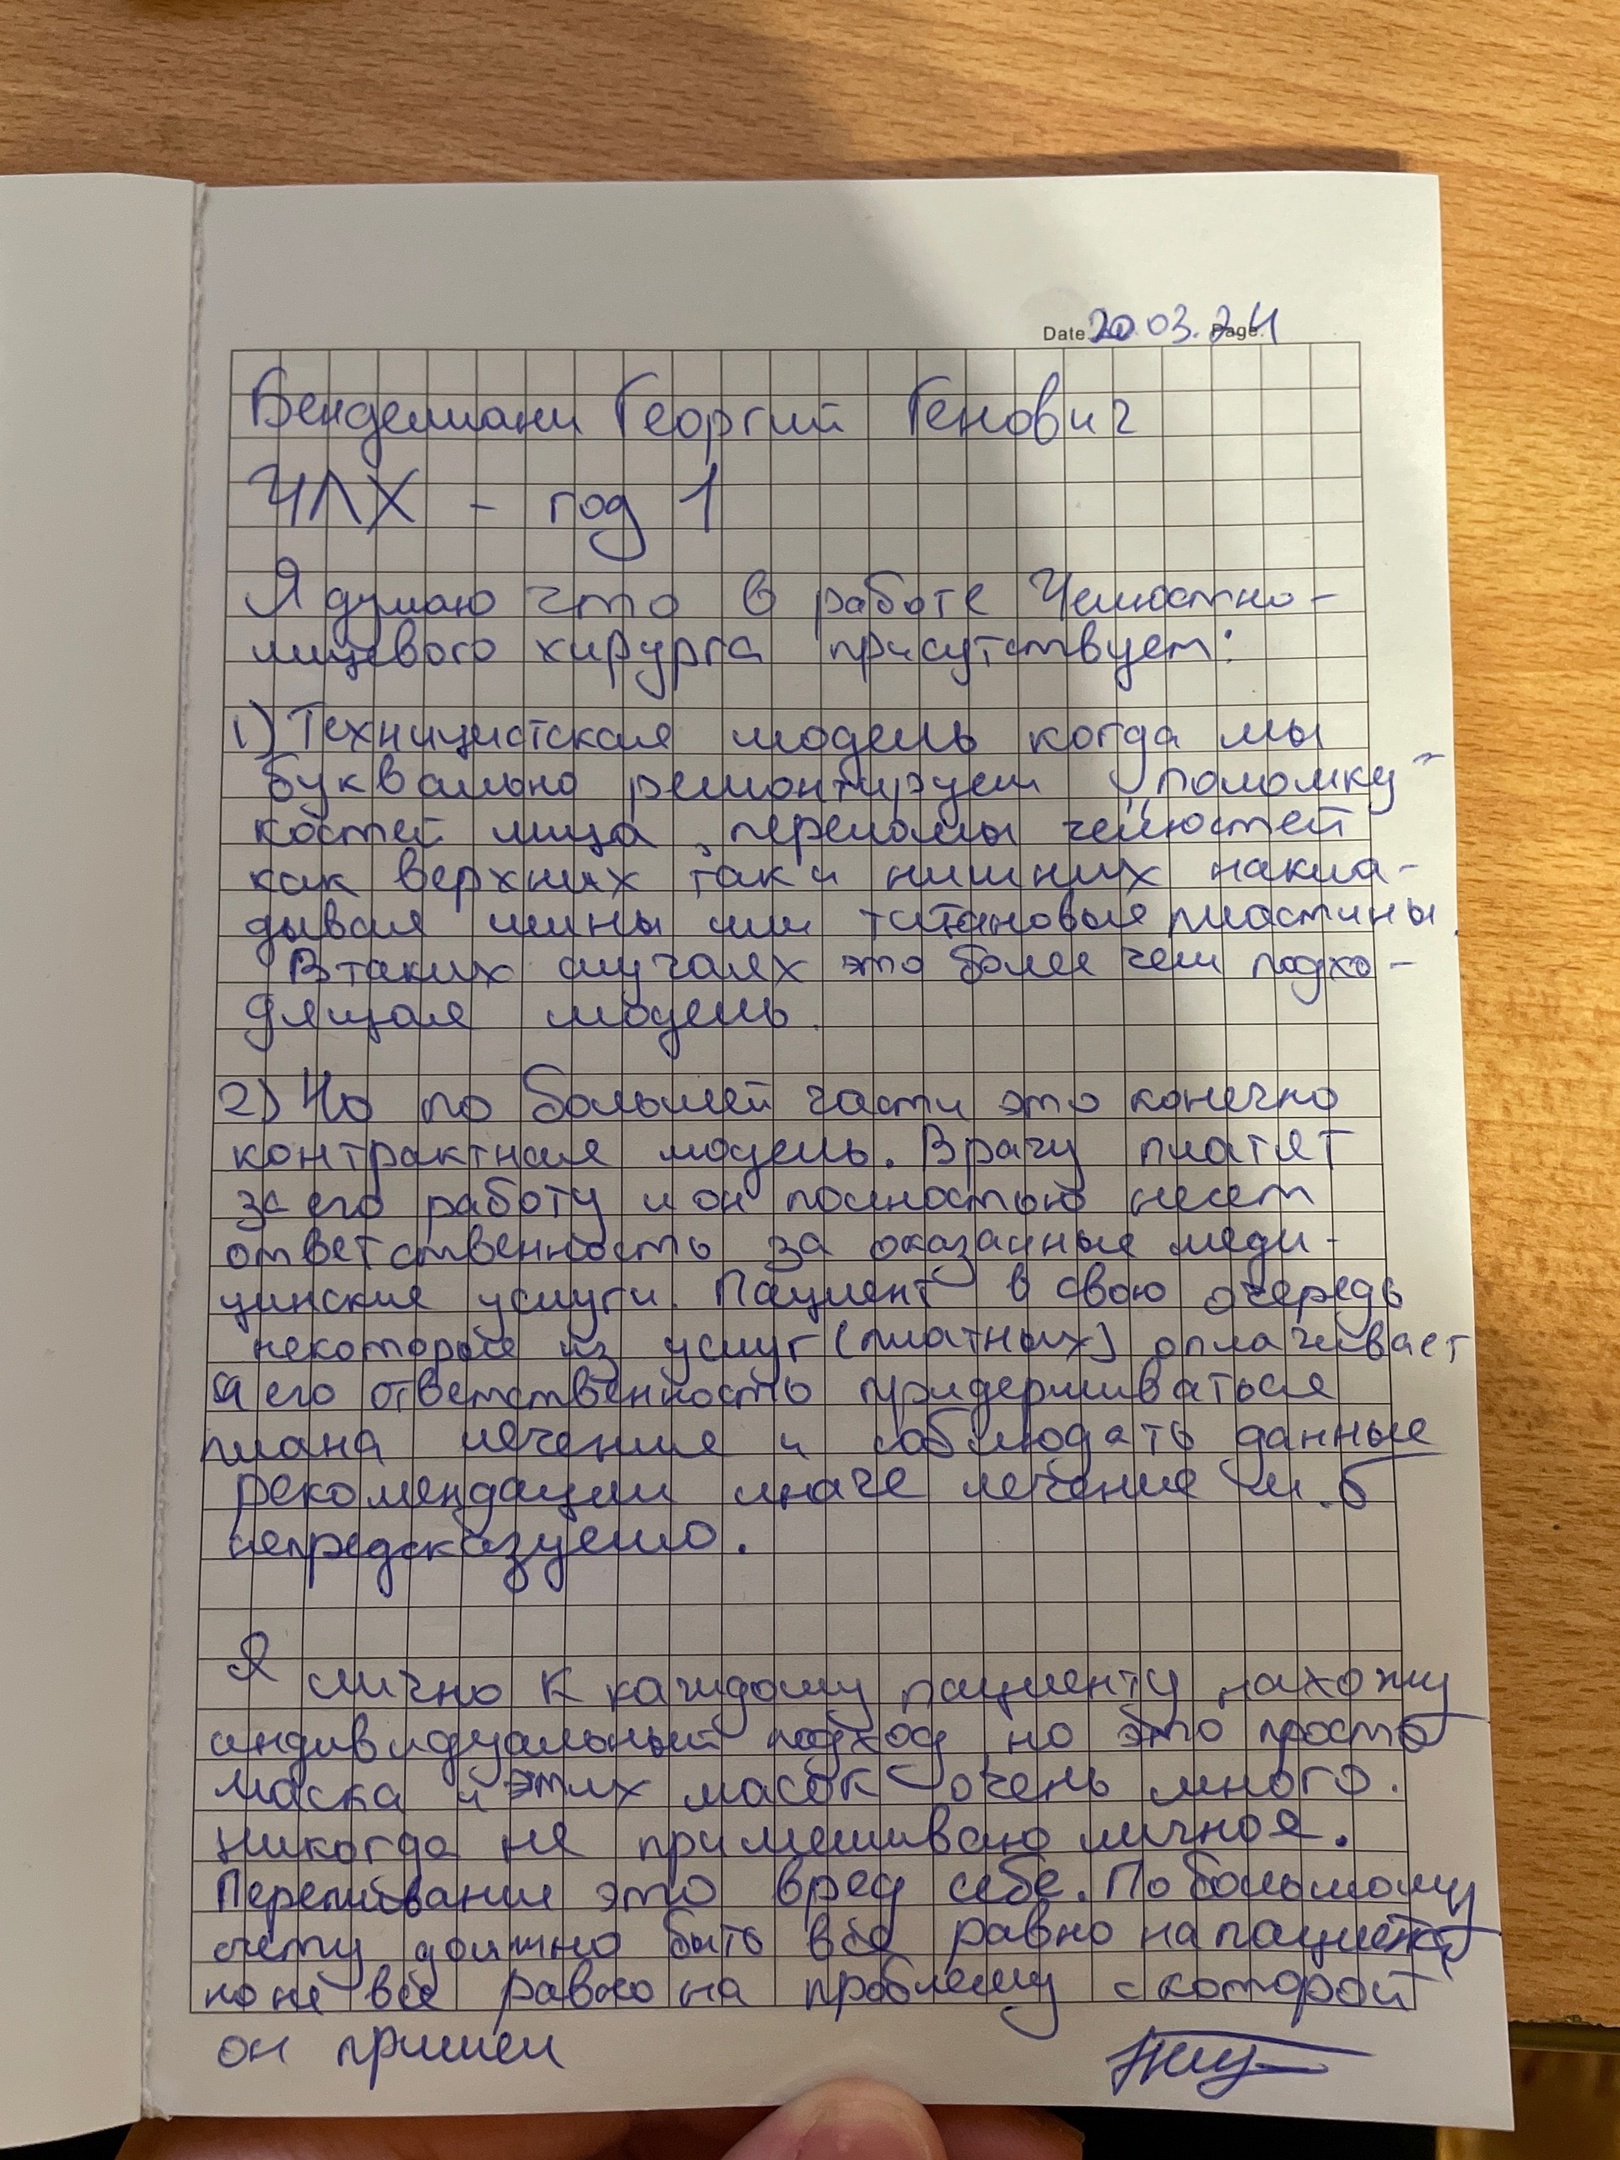 Date 20.03.24 Page.
Бенделиани Георгий Генович
ЧЛХ - год 1
Я думаю что в работе Челюстно-
лицевого хирурга присутствует:
1) Техницистская модель когда мы
буквально ремонтируем „поломку"
костей лица, переломы челюстей
как верхних так и нижних накла-
дывая шины или титановые пластины.
В таких случаях это более чем подхо-
дящая модель.
2) Но по большей части это конечно
контрактная модель. Врачу платят
за его работу и он полностью несет
ответственность за оказанные меди-
цинские услуги. Пациент в свою очередь
некоторые из услуг (платных) оплачивает
а его ответственность придерживаться
плана лечения и соблюдать данные
рекомендации иначе лечение м.б
непредсказуемо.
Я лично к каждому пациенту нахожу
индивидуальный подход но это просто
маска и этих масок очень много.
Никогда не примешиваю личное.
Переживание это вред себе. По большому
счету должно быть всё равно на пациента
но не всё равно на проблему с которой
он пришел